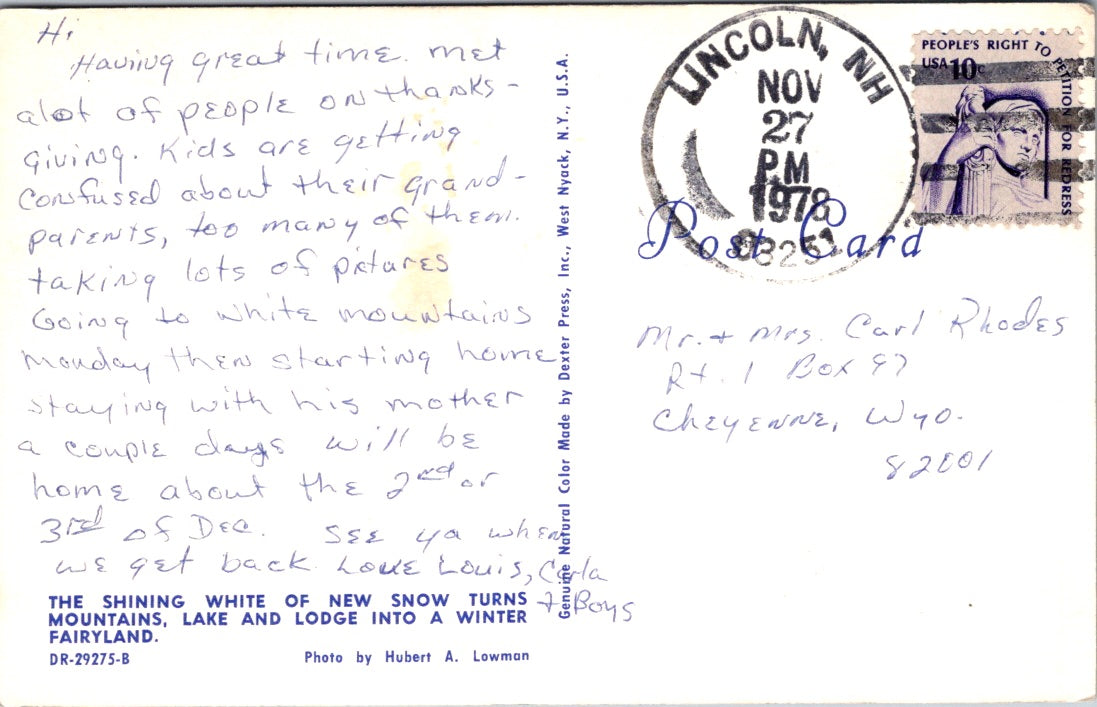 Hi
Having great time. met
alot of people on thanks-
giving. Kids are getting
confused about their grand-
parents, too many of them.
taking lots of pictures
Going to white mountains
monday then starting home
staying with his mother
a couple days will be
home about the 2nd or
3rd of Dec. See ya when
we get back. Love Louis, Carla
+ Boys
THE SHINING WHITE OF NEW SNOW TURNS
MOUNTAINS, LAKE AND LODGE INTO A WINTER
FAIRYLAND.
DR-29275-B Photo by Hubert A. Lowman
Genuine Natural Color Made by Dexter Press, Inc., West Nyack, N.Y., U.S.A.
LINCOLN, NH
NOV
27
PM
1978
03251
PEOPLE'S RIGHT TO PETITION FOR REDRESS
USA 10c
Post Card
Mr. + Mrs. Carl Rhodes
Rt. 1 Box 97
Cheyenne, Wyo.
82001